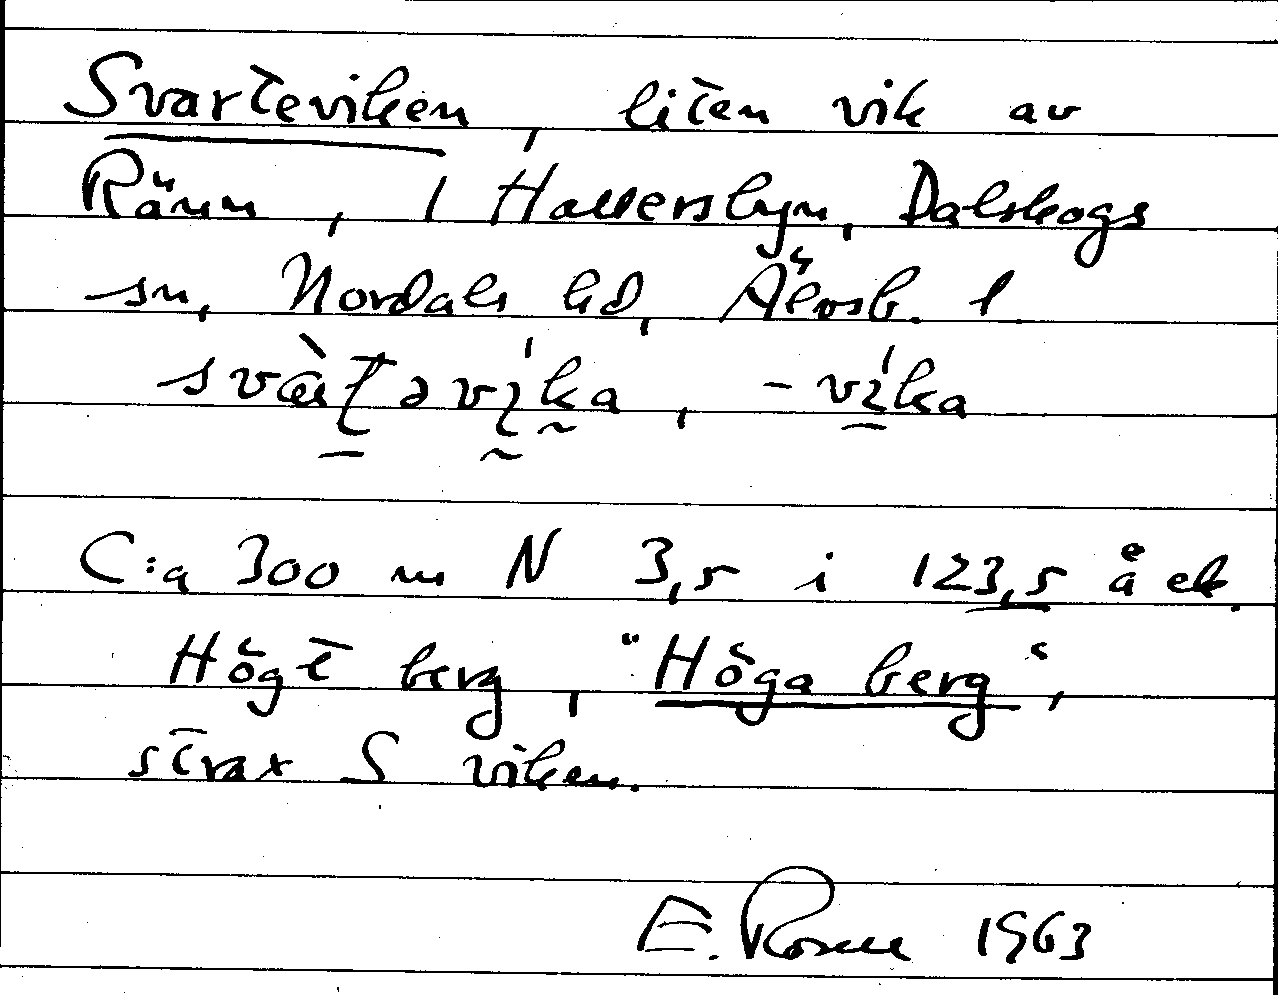 Svarteviken, liten vik av
Ränn, i Hallersbyn, Dalskogs
sn, Nordals hd, Älvsb. l
-vika
C:a 300 m N 3,5 i 123,5 å ek.
Högt berg, "Höga berg",
strax S viken.
E. Rosell 1963